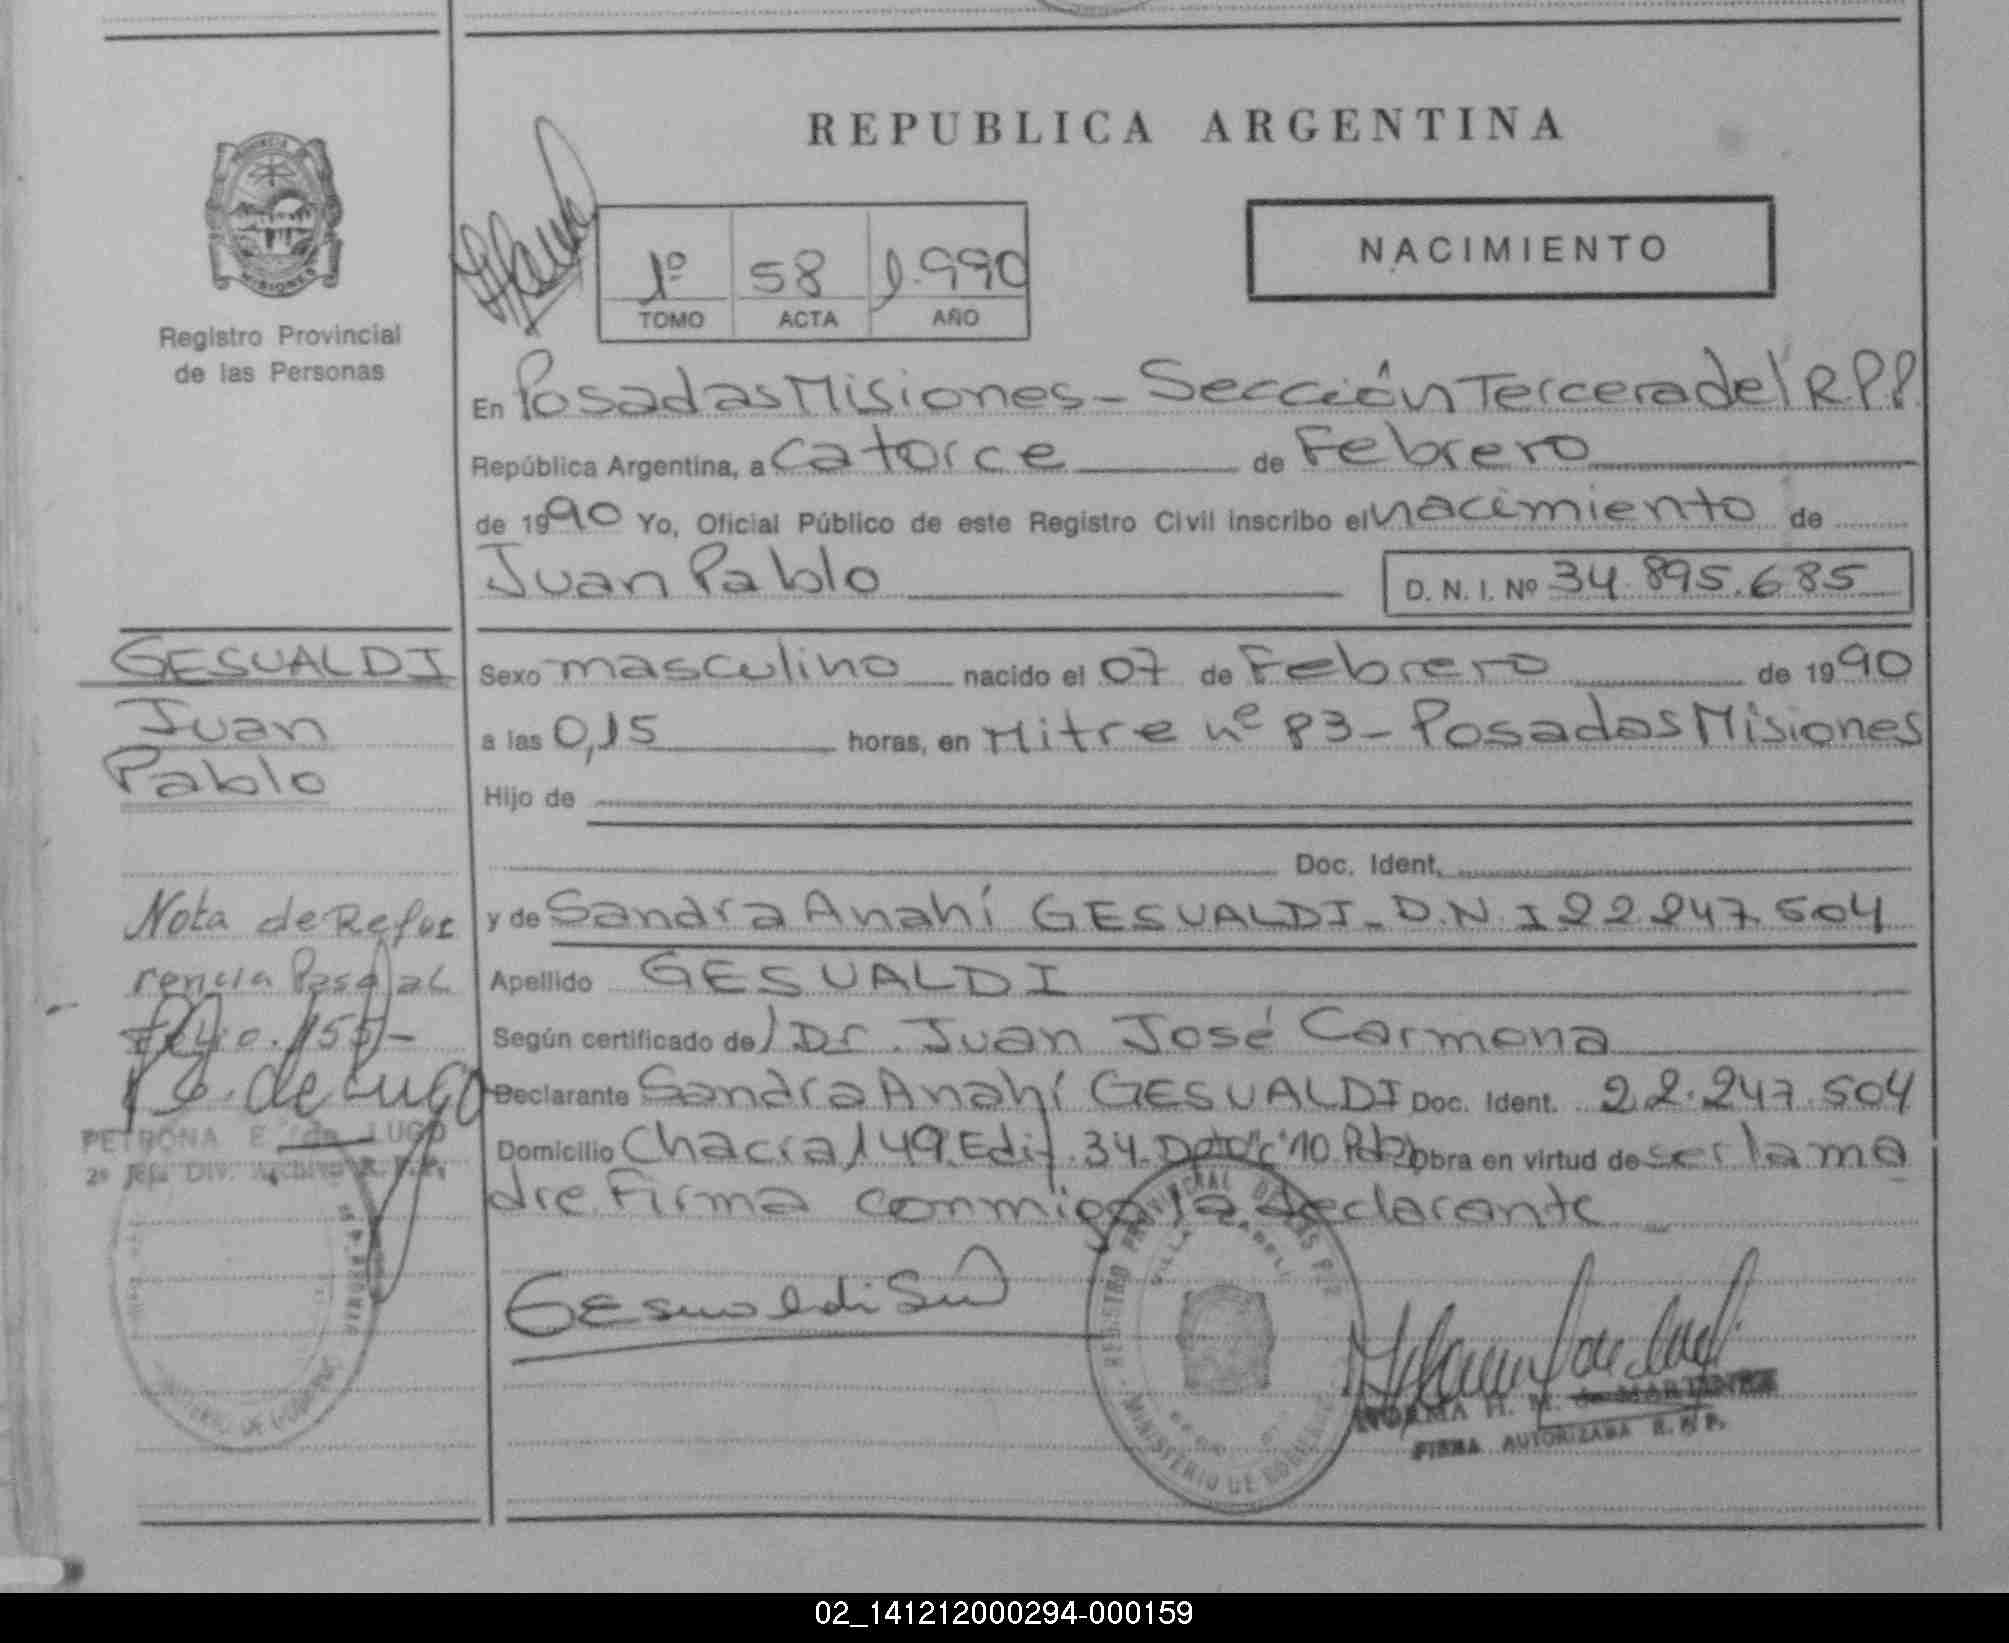 REPUBLICA ARGENTINA
NACIMIENTO
1º 58 1.990
TOMO ACTA AÑO
Registro Provincial
de las Personas
En Posadas Misiones - Sección Tercera del R.P.P.
República Argentina, a catorce de Febrero
de 1990 Yo, Oficial Público de este Registro Civil inscribo el nacimiento de
Juan Pablo D. N. I. Nº 34.895.685
GESUALDI
Juan
Pablo
Sexo masculino nacido el 07 de Febrero de 1990
a las 0,15 horas, en Mitre nº 83 - Posadas Misiones
Hijo de
Doc. Ident.
y de Sandra Anahí GESUALDI - D.N.I 22.247.504
Apellido GESUALDI
Según certificado de/ Dr. Juan José Carmona
Declarante Sandra Anahí GESUALDI Doc. Ident. 22.247.504
Domicilio Chacra 149 Edif. 34 Dpto "c" 10 Obra en virtud de ser la ma
dre. Firma conmigo la declarante
Nota de Refe
rencia
Folio. 155 -
P. E. de Lugo
PETRONA E. de LUGO
2º Jefe DIV. Archivo R. P. P.
MINISTERIO DE GOBIERNO
Gesualdi
REGISTRO PROVINCIAL DE LAS PER
MINISTERIO DE GOBIERNO
NORMA H. M. de MARTINEZ
FIRMA AUTORIZADA R. P. P.
02_141212000294-000159